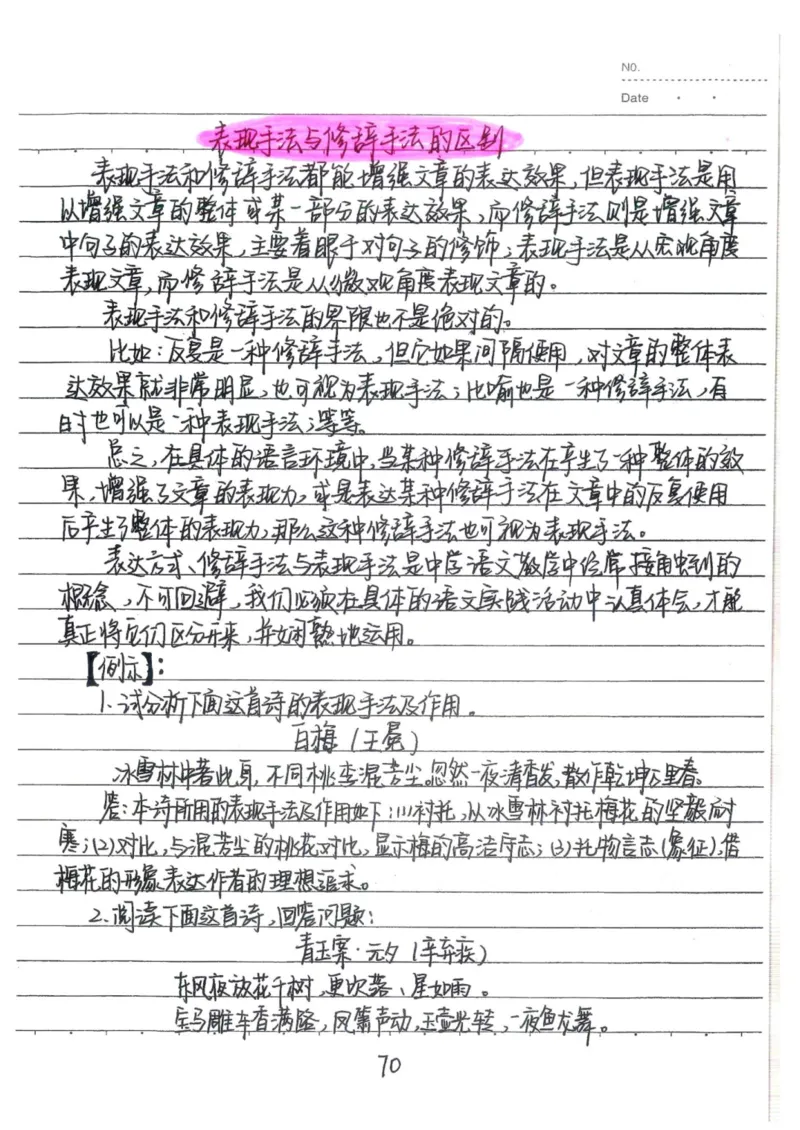 NO.
Date
表现手法与修辞手法的区别
表现手法和修辞手法都能增强文章的表达效果,但表现手法是用
以增强文章的整体或某一部分的表达效果,而修辞手法则是增强文章
中句子的表达效果,主要着眼于对句子的修饰;表现手法是从宏观角度
表现文章,而修辞手法是从微观角度表现文章的。
表现手法和修辞手法的界限也不是绝对的。
比如:反复是一种修辞手法,但它如果间隔使用,对文章的整体表
达效果就非常明显,也可视为表现手法;比喻也是一种修辞手法,有
时也可以是一种表现手法;等等。
总之,在具体的语言环境中,当某种修辞手法在产生了一种整体的效
果,增强了文章的表现力,或是表达某种修辞手法在文章中的反复使用
后产生了整体的表现力,那么这种修辞手法也可视为表现手法。
表达方式、修辞手法与表现手法是中学语文教学中经常接触到的
概念,不可回避,我们必须在具体的语文实践活动中认真体会,才能
真正将它们区分开来,并娴熟地运用。
【例示】:
1.试分析下面这首诗的表现手法及作用。
白梅(王冕)
冰雪林中著此身,不同桃李混芳尘。忽然一夜清香发,散作乾坤万里春。
答:本诗所用的表现手法及作用如下:(1)衬托,从冰雪林衬托梅花的坚毅耐
寒;(2)对比,与混芳尘的桃花对比,显示梅的高洁守志;(3)托物言志(象征),借
梅花的形象表达作者的理想追求。
2.阅读下面这首诗,回答问题:
青玉案·元夕(辛弃疾)
东风夜放花千树,更吹落、星如雨。
宝马雕车香满路,风箫声动,玉壶光转,一夜鱼龙舞。
70